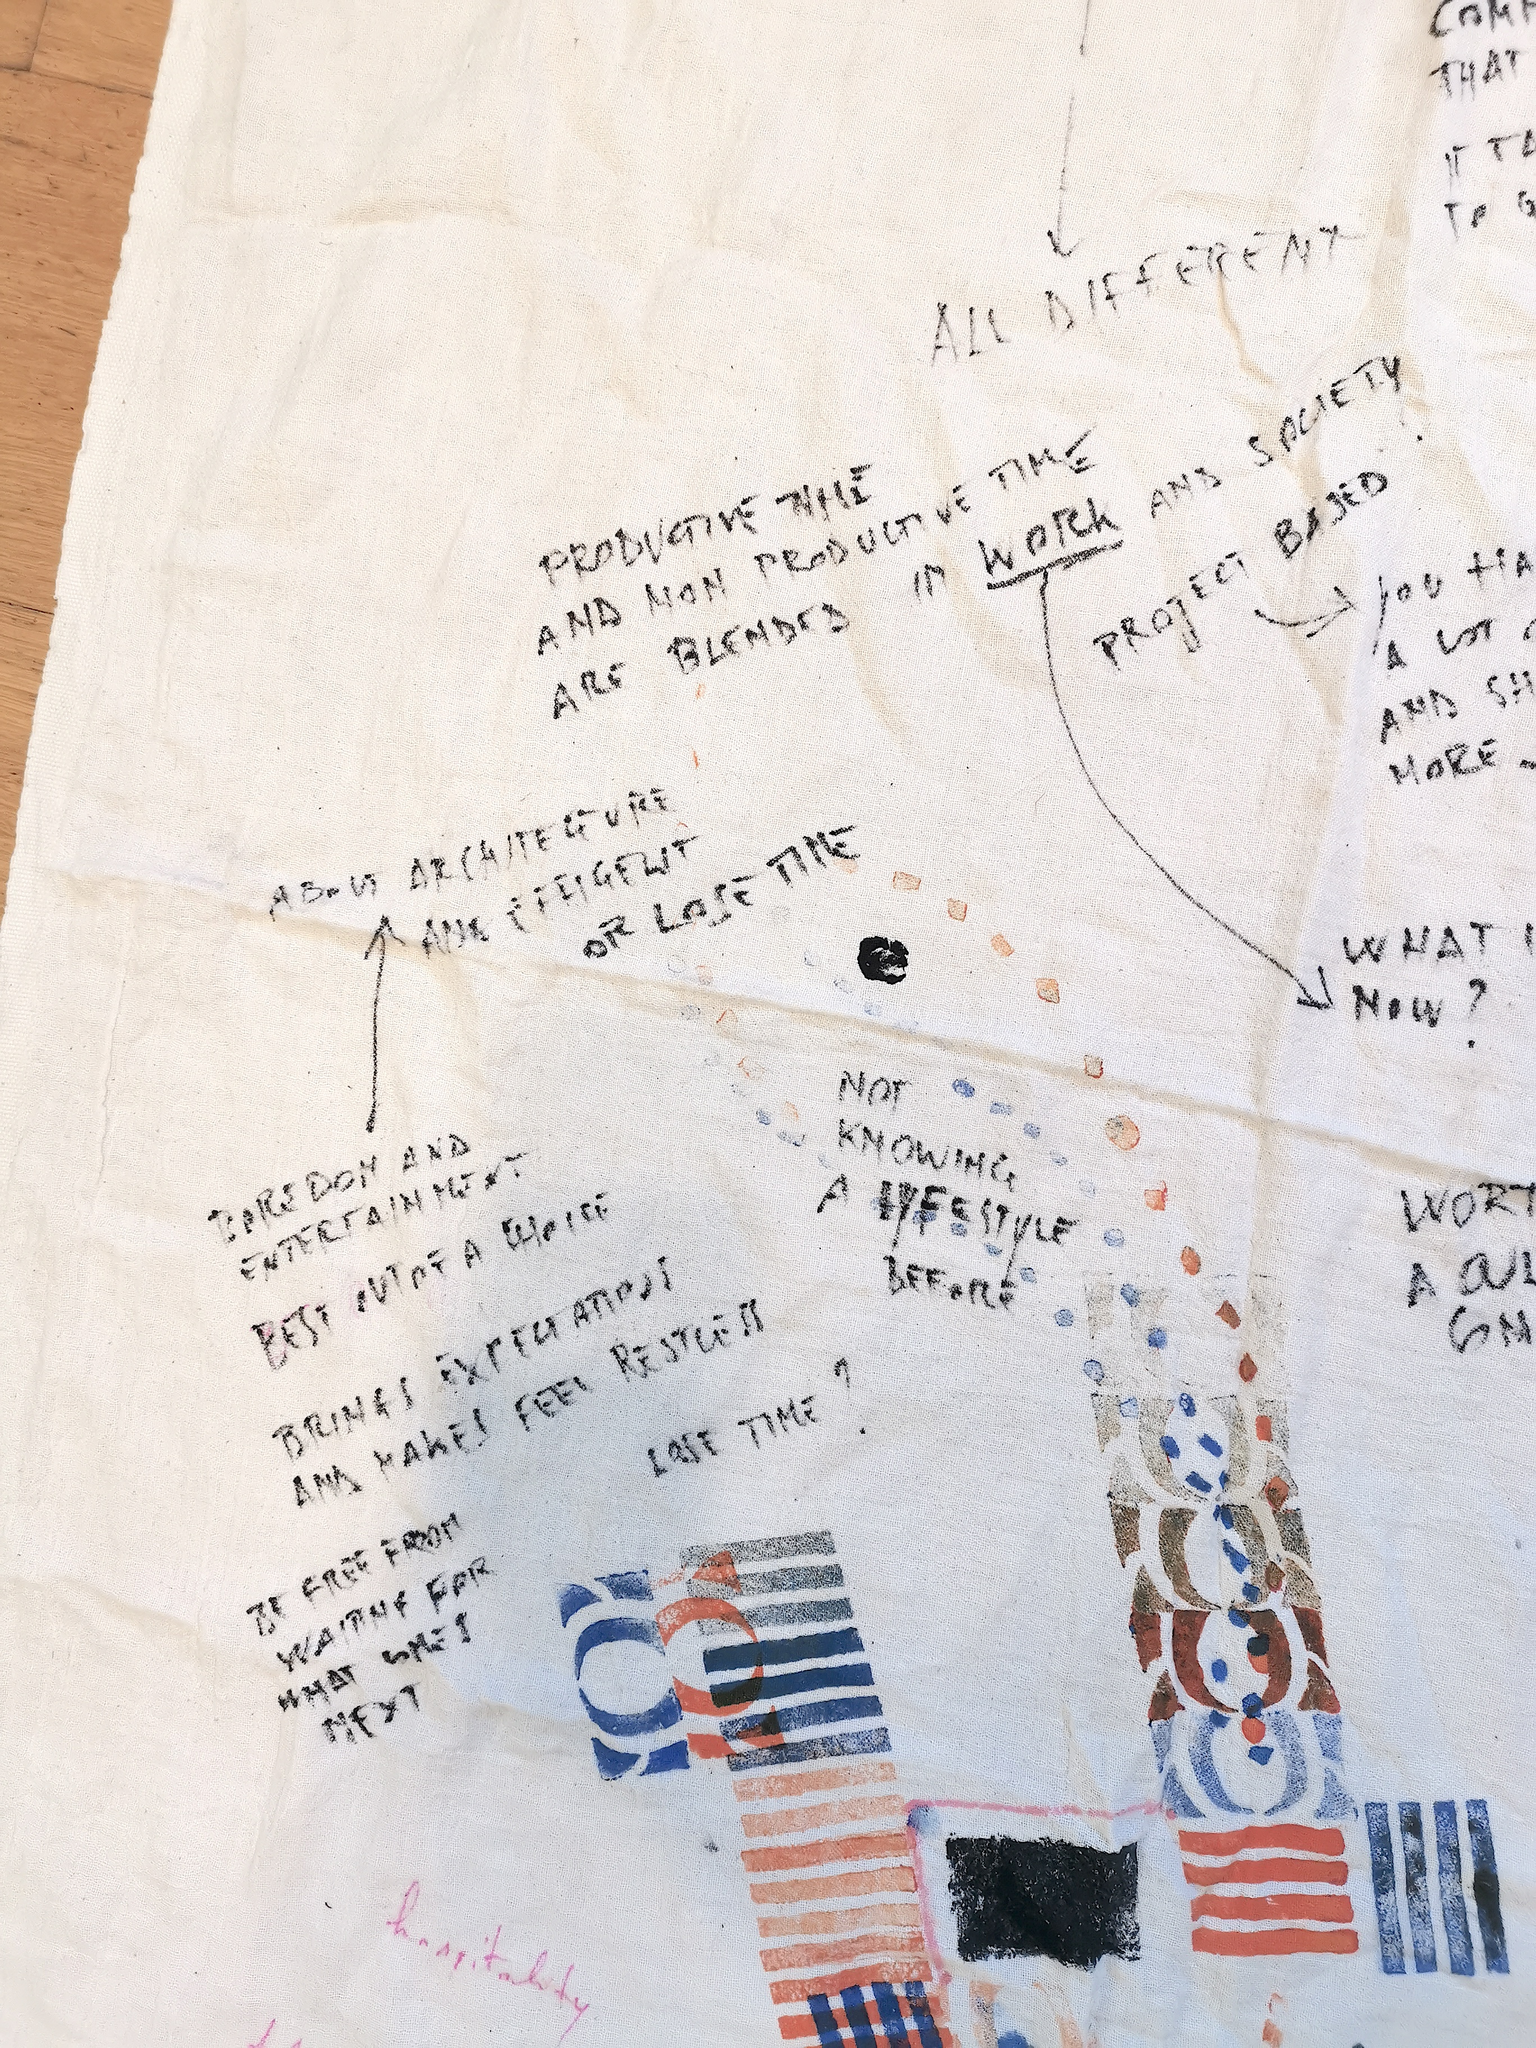 THAT
ALL DIFFERENT
PRODUCTIVE TIME
AND NON PRODUCTIVE TIME
ARE BLENDED IN WORK AND SOCIETY
PROJECT BASED
YOU HA
A LOT
AND SH
MORE
ABOUT ARCHITECTURE
OR LOSE TIME
WHAT I
NOW?
NOT
KNOWING
A LIFESTYLE
BEFORE
BOREDOM AND
ENTERTAINMENT
BEST OUT OF A CHOICE
BRINGS EXPECTATIONS
AND MAKES FEEL RESTLESS
LOSE TIME?
WORT
A
BE FREE FROM
WAITING FOR
WHAT COMES
NEXT
hospitality